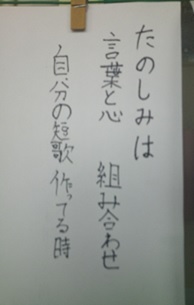 たのしみは
言葉と心 組み合わせ
自分の短歌 作ってる時